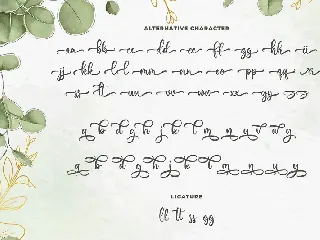 ALTERNATIVE CHARACTER
aa bb cc dd ee ff gg hh ii
jj kk ll mm nn oo pp qq rr
ss tt uu vv ww xx yy zz
a b d g h j k l m n u v w y
a b d g h j k l m n u y
LIGATURE
ll tt ss gg